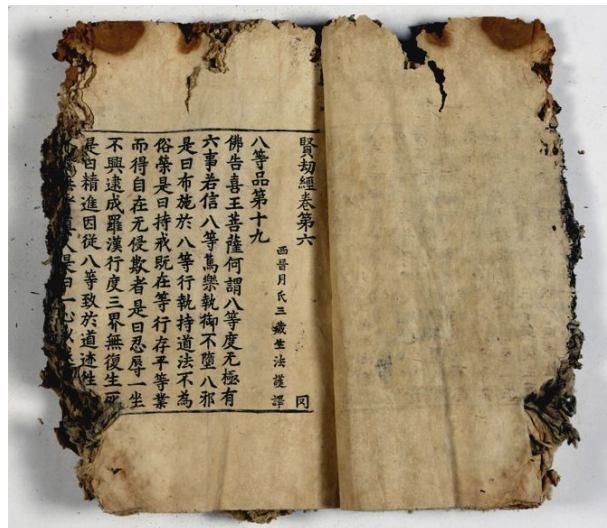 賢劫經卷第六
西晉月氏三藏竺法護譯
八等品第十九
佛告喜王菩薩何謂八等度无極有
六事若信八等篤樂執御不墮八邪
是曰布施於八等行執持道法不為
俗榮是曰持戒既在等行存平等業
而得自在无侵欺者是曰忍辱一坐
不興逮成羅漢行度三界無復生死
是曰精進因從八等致於道迹性
是曰一心以